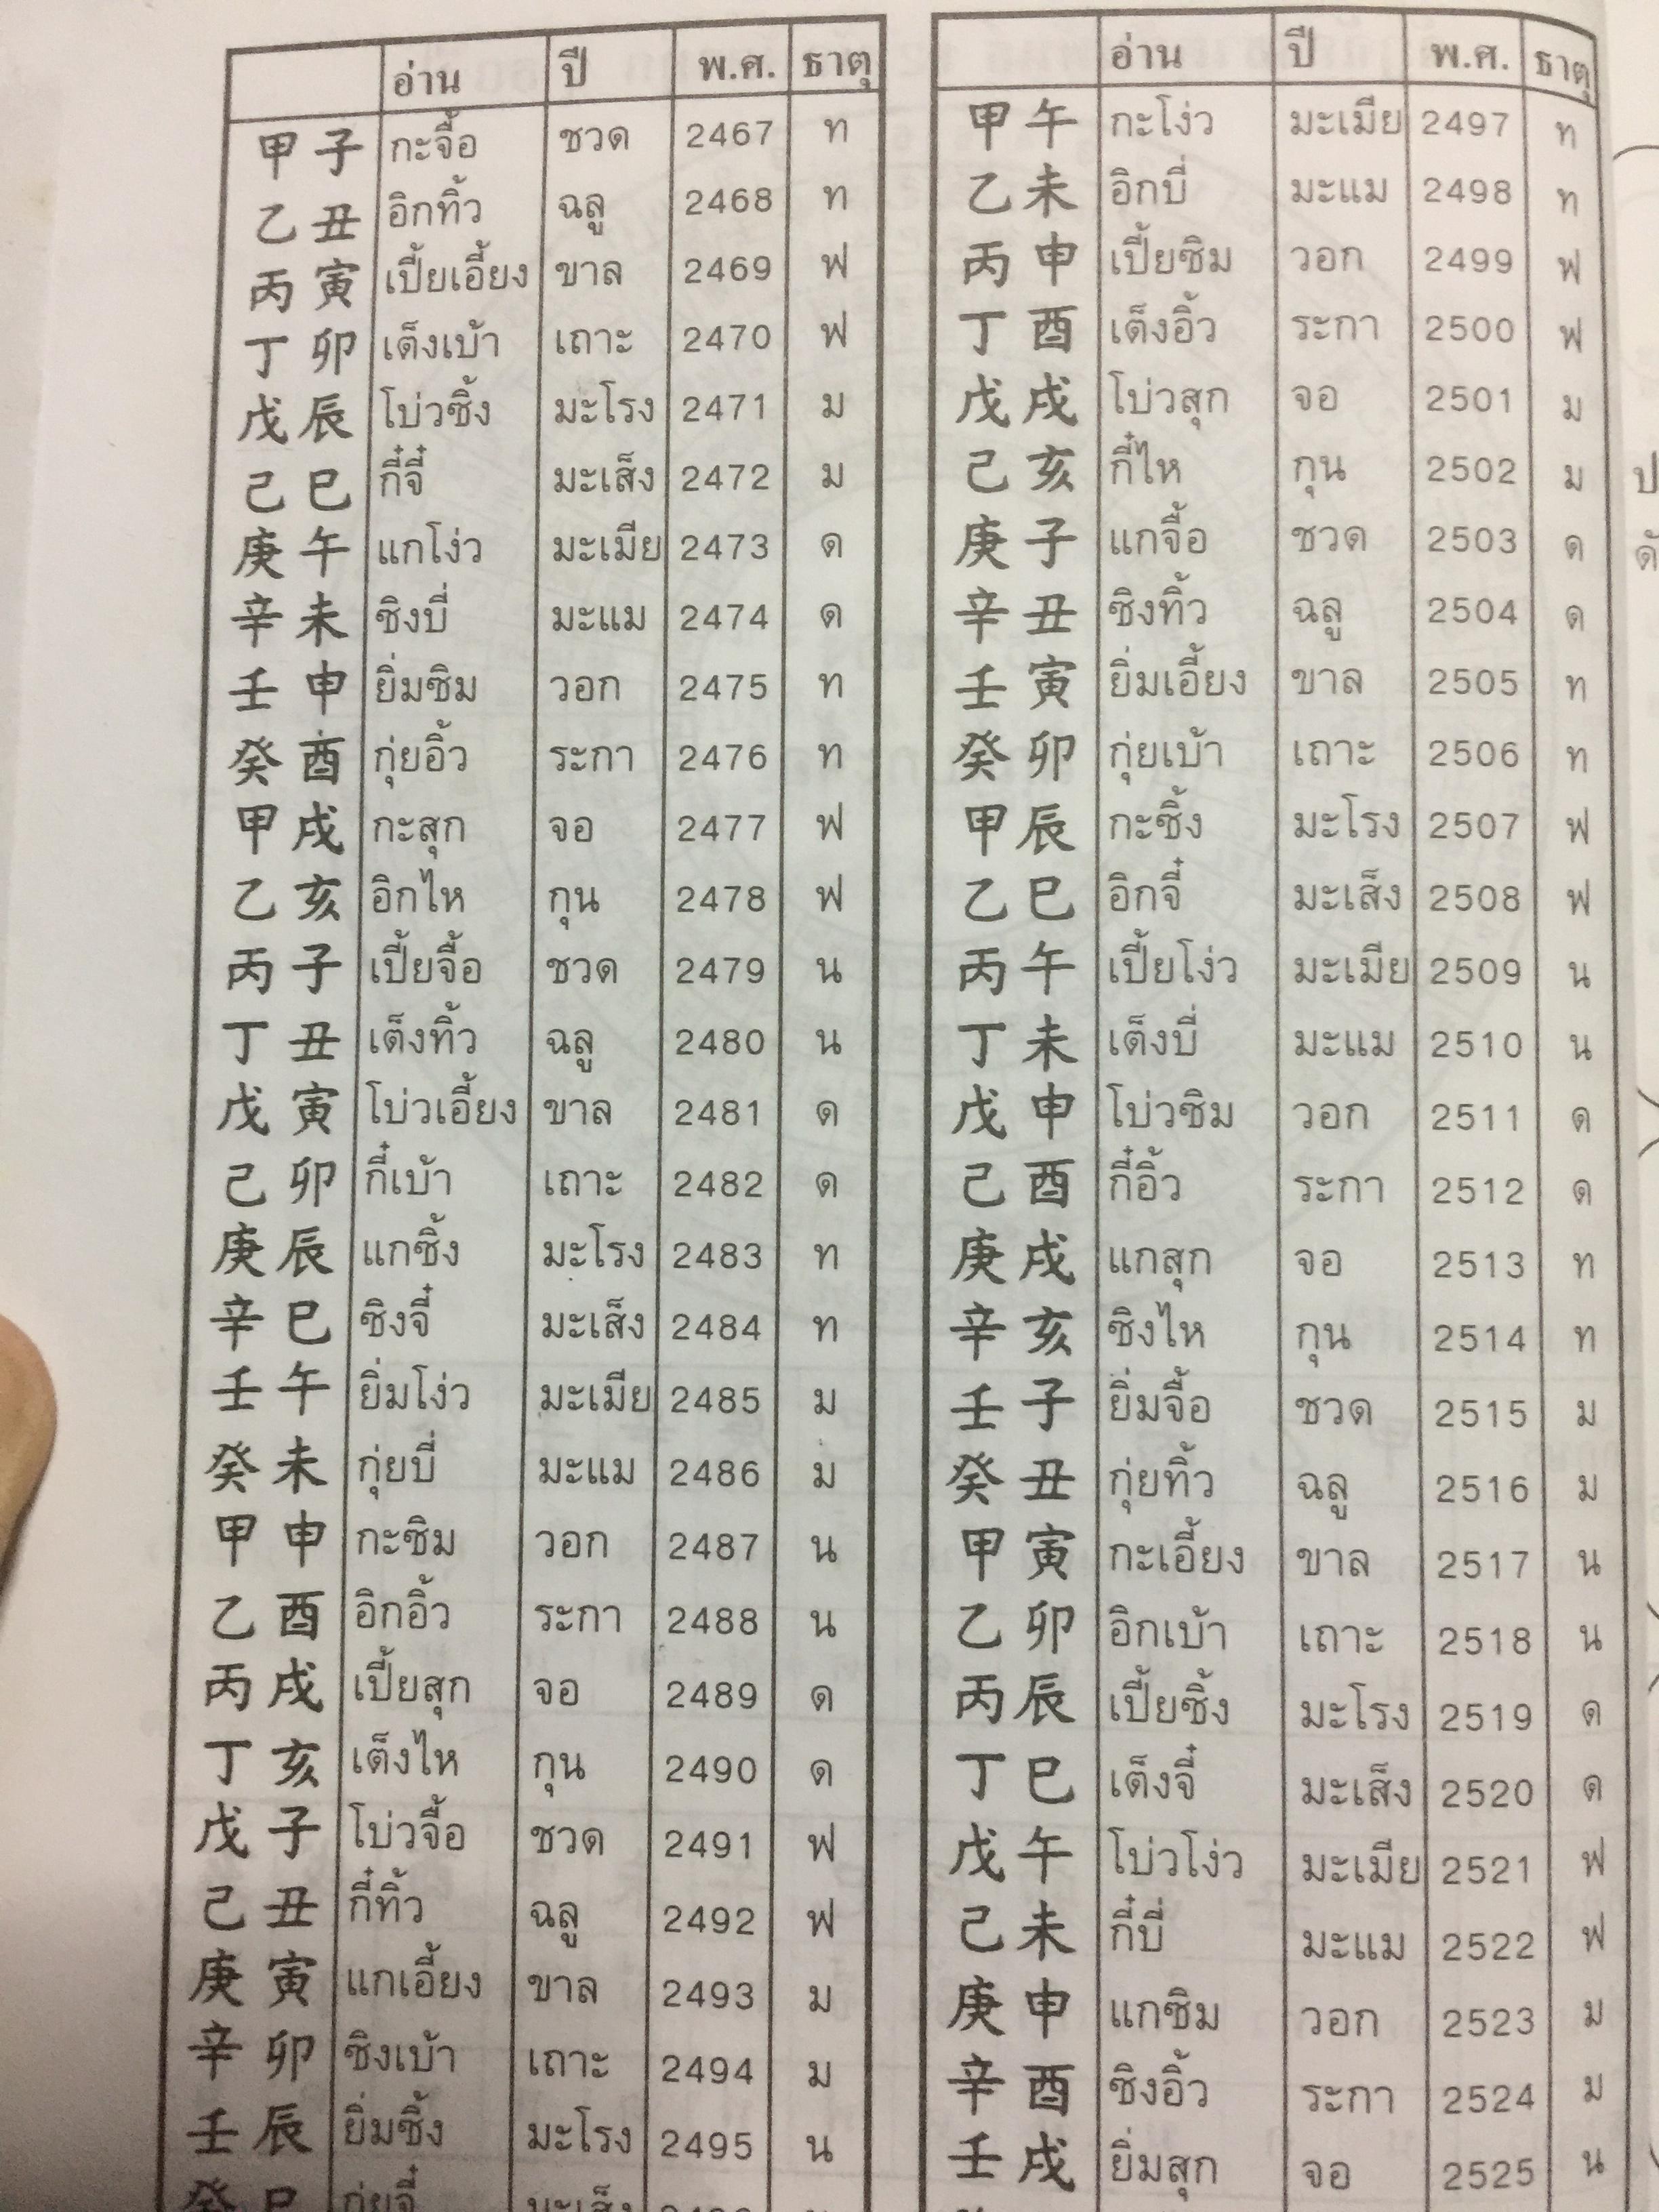 อ่าน ปี พ.ศ. ธาตุ
甲子 กะจื้อ ชวด 2467 ท
乙丑 อิกทิ้ว ฉลู 2468 ท
丙寅 เปี้ยเอี้ยง ขาล 2469 ฟ
丁卯 เต็งเบ้า เถาะ 2470 ฟ
戊辰 โบ่วซิ้ง มะโรง 2471 ม
己巳 กี๋จี๋ มะเส็ง 2472 ม
庚午 แกโง่ว มะเมีย 2473 ด
辛未 ซิงบี่ มะแม 2474 ด
壬申 ยิ่มซิม วอก 2475 ท
癸酉 กุ่ยอิ้ว ระกา 2476 ท
甲戌 กะสุก จอ 2477 ฟ
乙亥 อิกไห กุน 2478 ฟ
丙子 เปี้ยจื้อ ชวด 2479 น
丁丑 เต็งทิ้ว ฉลู 2480 น
戊寅 โบ่วเอี้ยง ขาล 2481 ด
己卯 กี๋เบ้า เถาะ 2482 ด
庚辰 แกซิ้ง มะโรง 2483 ท
辛巳 ซิงจี๋ มะเส็ง 2484 ท
壬午 ยิ่มโง่ว มะเมีย 2485 ม
癸未 กุ่ยบี่ มะแม 2486 ม
甲申 กะซิม วอก 2487 น
乙酉 อิกอิ้ว ระกา 2488 น
丙戌 เปี้ยสุก จอ 2489 ด
丁亥 เต็งไห กุน 2490 ด
戊子 โบ่วจื้อ ชวด 2491 ฟ
己丑 กี๋ทิ้ว ฉลู 2492 ฟ
庚寅 แกเอี้ยง ขาล 2493 ม
辛卯 ซิงเบ้า เถาะ 2494 ม
壬辰 ยิ่มซิ้ง มะโรง 2495 น
癸巳 กุ่ยจี๋ มะเส็ง
อ่าน ปี พ.ศ. ธาตุ
甲午 กะโง่ว มะเมีย 2497 ท
乙未 อิกบี่ มะแม 2498 ท
丙申 เปี้ยซิม วอก 2499 ฟ
丁酉 เต็งอิ้ว ระกา 2500 ฟ
戊戌 โบ่วสุก จอ 2501 ม
己亥 กี๋ไห กุน 2502 ม
庚子 แกจื้อ ชวด 2503 ด
辛丑 ซิงทิ้ว ฉลู 2504 ด
壬寅 ยิ่มเอี้ยง ขาล 2505 ท
癸卯 กุ่ยเบ้า เถาะ 2506 ท
甲辰 กะซิ้ง มะโรง 2507 ฟ
乙巳 อิกจี๋ มะเส็ง 2508 ฟ
丙午 เปี้ยโง่ว มะเมีย 2509 น
丁未 เต็งบี่ มะแม 2510 น
戊申 โบ่วซิม วอก 2511 ด
己酉 กี๋อิ้ว ระกา 2512 ด
庚戌 แกสุก จอ 2513 ท
辛亥 ซิงไห กุน 2514 ท
壬子 ยิ่มจื้อ ชวด 2515 ม
癸丑 กุ่ยทิ้ว ฉลู 2516 ม
甲寅 กะเอี้ยง ขาล 2517 น
乙卯 อิกเบ้า เถาะ 2518 น
丙辰 เปี้ยซิ้ง มะโรง 2519 ด
丁巳 เต็งจี๋ มะเส็ง 2520 ด
戊午 โบ่วโง่ว มะเมีย 2521 ฟ
己未 กี๋บี่ มะแม 2522 ฟ
庚申 แกซิม วอก 2523 ม
辛酉 ซิงอิ้ว ระกา 2524 ม
壬戌 ยิ่มสุก จอ 2525 น